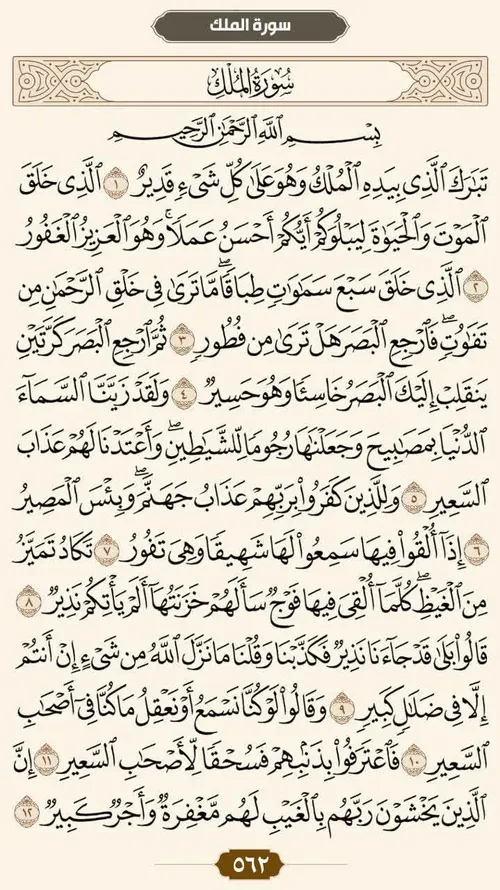 سورة الملك
سُورَةُ المُلْكِ
بِسْمِ ٱللَّهِ ٱلرَّحْمَٰنِ ٱلرَّحِيمِ
تَبَٰرَكَ ٱلَّذِى بِيَدِهِ ٱلْمُلْكُ وَهُوَ عَلَىٰ كُلِّ شَىْءٍ قَدِيرٌ ١ ٱلَّذِى خَلَقَ
ٱلْمَوْتَ وَٱلْحَيَوٰةَ لِيَبْلُوَكُمْ أَيُّكُمْ أَحْسَنُ عَمَلًا ۚ وَهُوَ ٱلْعَزِيزُ ٱلْغَفُورُ
٢ ٱلَّذِى خَلَقَ سَبْعَ سَمَٰوَٰتٍ طِبَاقًا ۖ مَّا تَرَىٰ فِى خَلْقِ ٱلرَّحْمَٰنِ مِن
تَفَٰوُتٍ ۖ فَٱرْجِعِ ٱلْبَصَرَ هَلْ تَرَىٰ مِن فُطُورٍ ٣ ثُمَّ ٱرْجِعِ ٱلْبَصَرَ كَرَّتَيْنِ
يَنقَلِبْ إِلَيْكَ ٱلْبَصَرُ خَاسِئًا وَهُوَ حَسِيرٌ ٤ وَلَقَدْ زَيَّنَّا ٱلسَّمَآءَ
ٱلدُّنْيَا بِمَصَٰبِيحَ وَجَعَلْنَٰهَا رُجُومًا لِّلشَّيَٰطِينِ ۖ وَأَعْتَدْنَا لَهُمْ عَذَابَ
ٱلسَّعِيرِ ٥ وَلِلَّذِينَ كَفَرُوا۟ بِرَبِّهِمْ عَذَابُ جَهَنَّمَ ۖ وَبِئْسَ ٱلْمَصِيرُ
٦ إِذَآ أُلْقُوا۟ فِيهَا سَمِعُوا۟ لَهَا شَهِيقًا وَهِىَ تَفُورُ ٧ تَكَادُ تَمَيَّزُ
مِنَ ٱلْغَيْظِ ۖ كُلَّمَآ أُلْقِىَ فِيهَا فَوْجٌ سَأَلَهُمْ خَزَنَتُهَآ أَلَمْ يَأْتِكُمْ نَذِيرٌ ٨
قَالُوا۟ بَلَىٰ قَدْ جَآءَنَا نَذِيرٌ فَكَذَّبْنَا وَقُلْنَا مَا نَزَّلَ ٱللَّهُ مِن شَىْءٍ إِنْ أَنتُمْ
إِلَّا فِى ضَلَٰلٍ كَبِيرٍ ٩ وَقَالُوا۟ لَوْ كُنَّا نَسْمَعُ أَوْ نَعْقِلُ مَا كُنَّا فِىٓ أَصْحَٰبِ
ٱلسَّعِيرِ ١٠ فَٱعْتَرَفُوا۟ بِذَنۢبِهِمْ فَسُحْقًا لِّأَصْحَٰبِ ٱلسَّعِيرِ ١١ إِنَّ
ٱلَّذِينَ يَخْشَوْنَ رَبَّهُم بِٱلْغَيْبِ لَهُم مَّغْفِرَةٌ وَأَجْرٌ كَبِيرٌ ١٢
٥٦٢